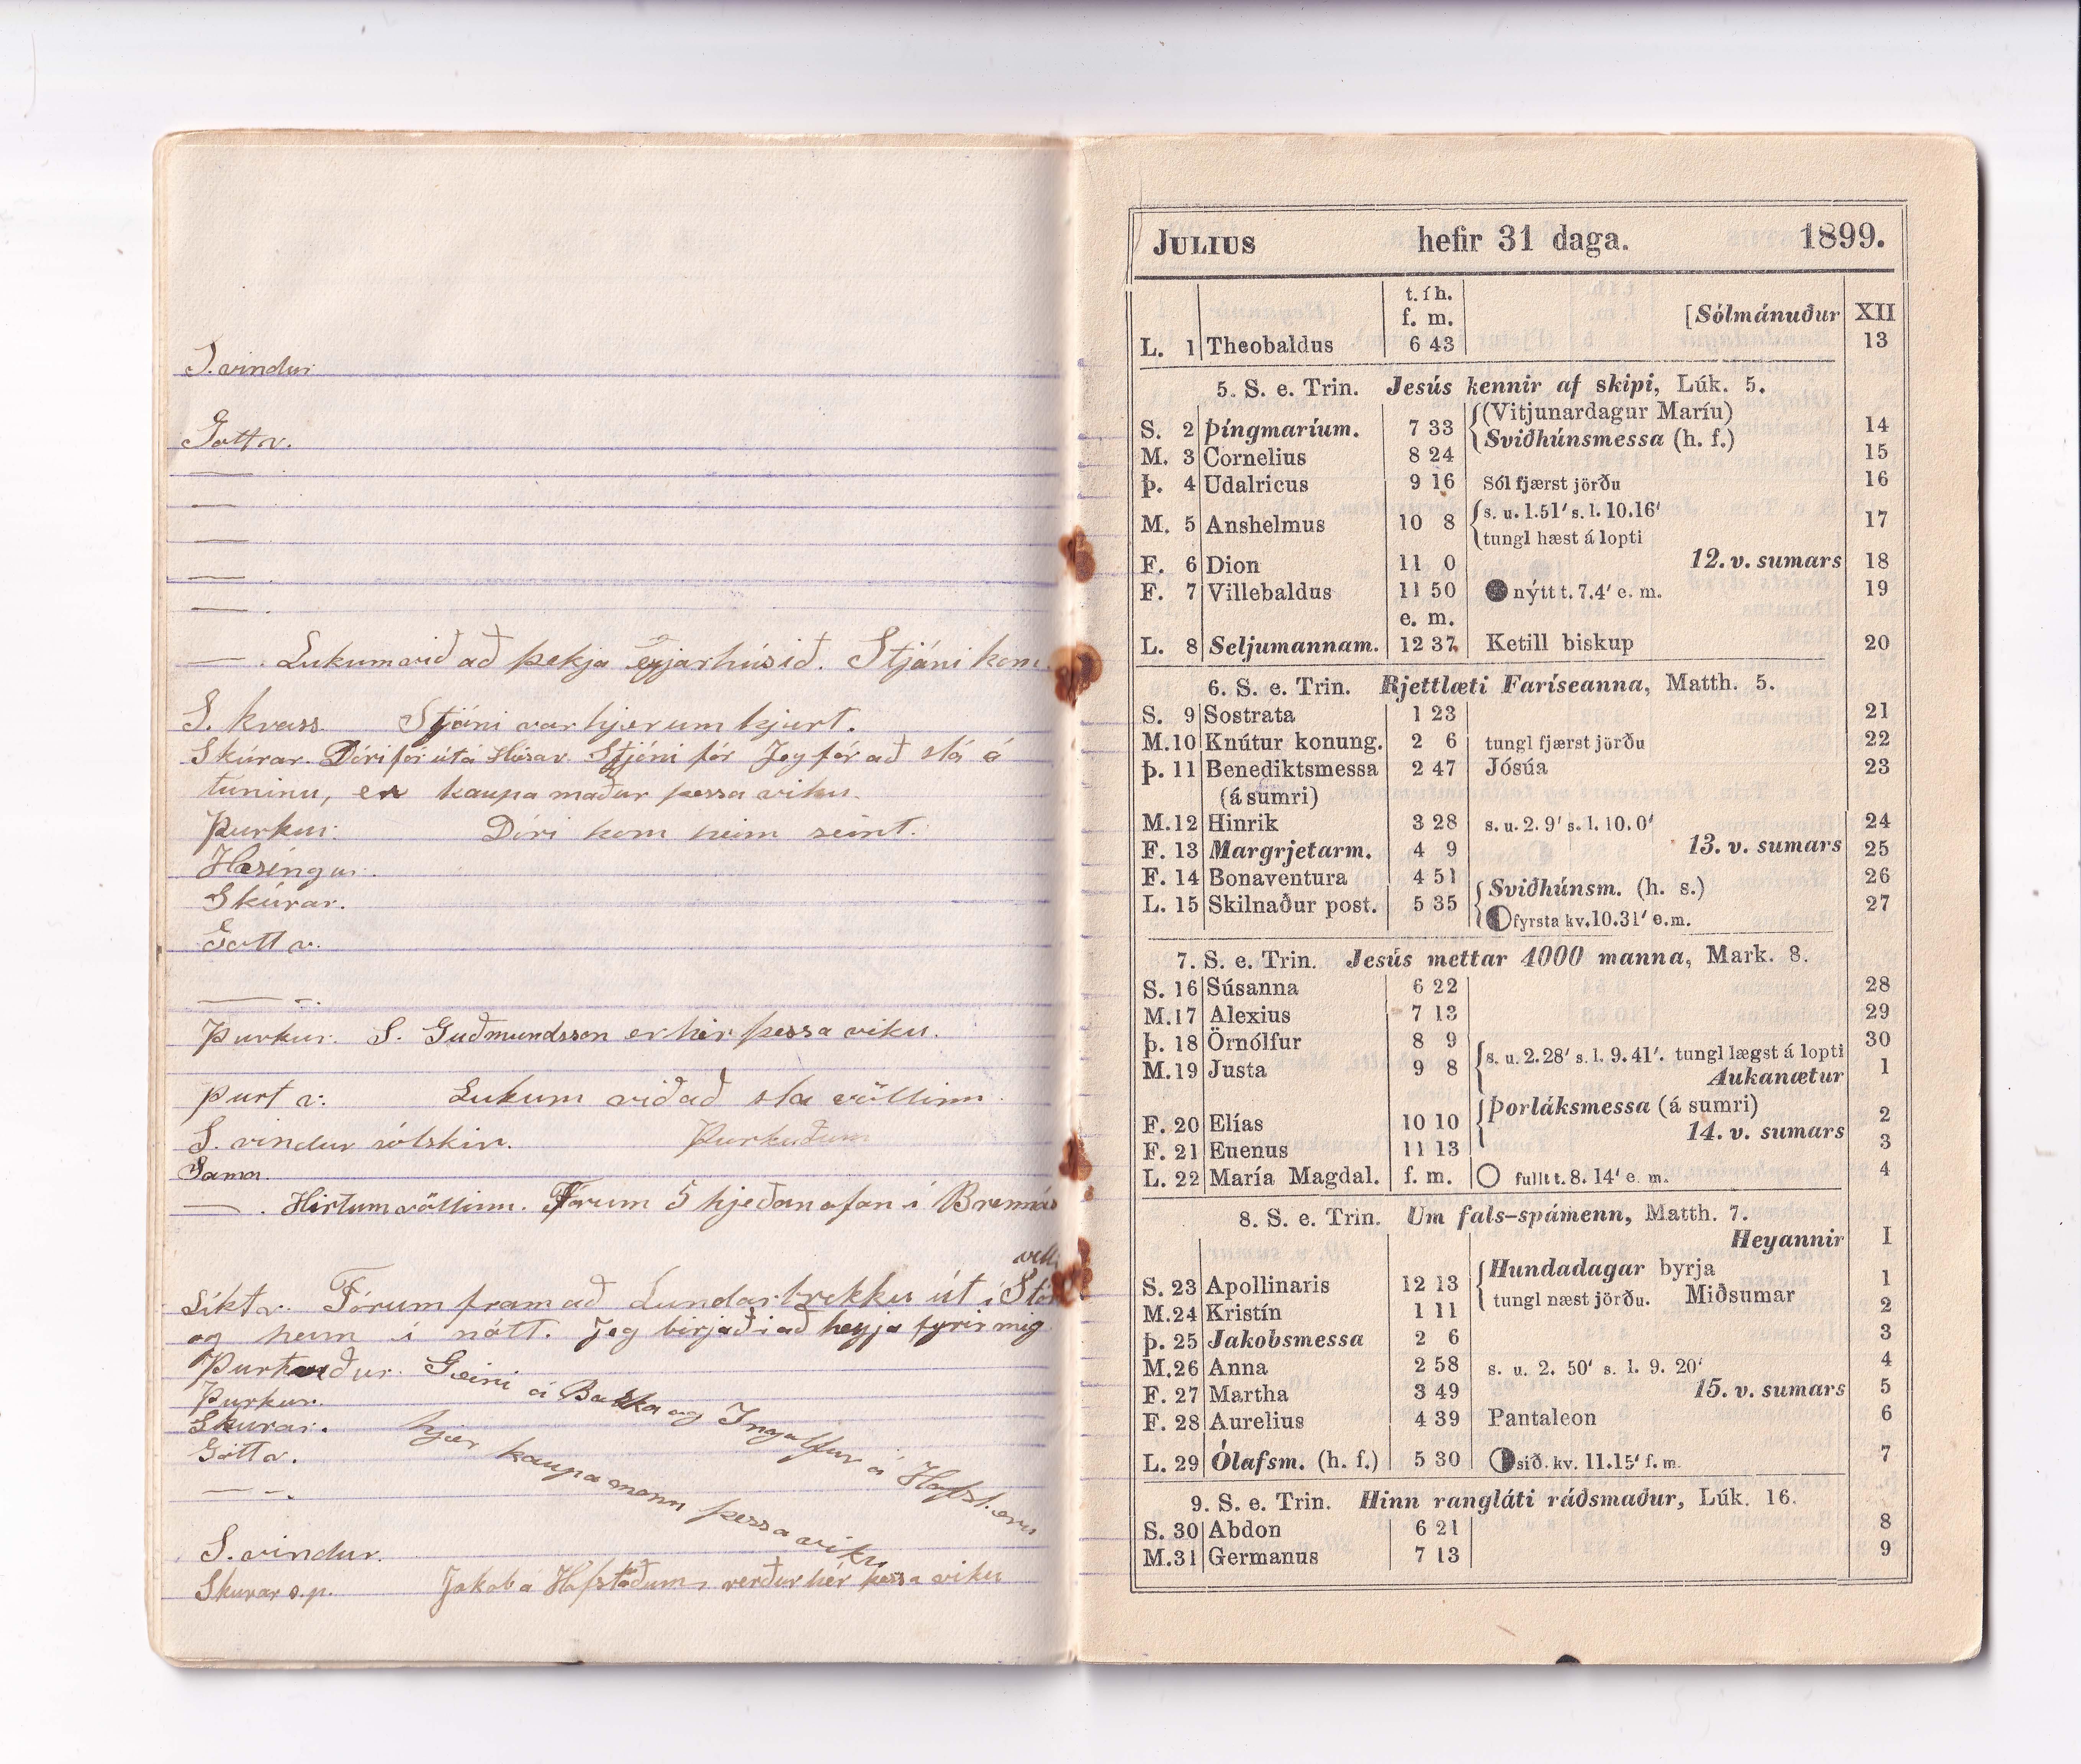 S. vindur
Gott v.
—
—
—
—
—
— . Lukum við að þekja eyjarhúsið. Stjáni kom
S. kvass Stjáni var hjer um kjurt.
Skúrar. Dóri fór út á Húsav. Stjáni fór Jeg fór að slá á
túninu, er kaupamaður þessa viku.
Þurkur. Dóri kom heim seint.
Hæsingur.
Skúrar.
Gott v.
— -.
Þurkur. S. Guðmundsson er hér þessa viku.
Þurt v. Lukum við að sla völlinn.
S. vindur sólskin. Þurkuðum
Sama.
— . Hirtum völlinn. Fórum 5 hjeðan ofan í Brennás
velli
Líkt v. Fórum fram að Lundarbrekku út í Stó
og heim í nótt. Jeg birjaði að heyja fyrir mig
Þurt veður. Geiri á Bakka og Ingulfur á Hofst. eru
Þurkur. hjer kaupamenn þessa viku
Skurar.
Gott v.
— -.
S. vindur.
Skurar s.p. Jakob á Hofstöðum verður hér þessa viku
JULIUS hefir 31 daga. 1899.
t. í h.
f. m. [Sólmánuður XII
L. 1 Theobaldus 6 43 13
5. S. e. Trin. Jesús kennir af skipi, Lúk. 5.
S. 2 Þíngmaríum. 7 33 (Vitjunardagur Maríu) 14
Sviðhúnsmessa (h. f.)
M. 3 Cornelius 8 24 15
Þ. 4 Udalricus 9 16 Sól fjærst jörðu 16
M. 5 Anshelmus 10 8 s. u. 1.51' s. l. 10.16' 17
tungl hæst á lopti
F. 6 Dion 11 0 12. v. sumars 18
F. 7 Villebaldus 11 50 nýtt t. 7.4' e. m. 19
e. m.
L. 8 Seljumannam. 12 37 Ketill biskup 20
6. S. e. Trin. Rjettlæti Faríseanna, Matth. 5.
S. 9 Sostrata 1 23 21
M. 10 Knútur konung. 2 6 tungl fjærst jörðu 22
Þ. 11 Benediktsmessa 2 47 Jósúa 23
(á sumri)
M. 12 Hinrik 3 28 s. u. 2. 9' s. l. 10. 0' 24
F. 13 Margrjetarm. 4 9 13. v. sumars 25
F. 14 Bonaventura 4 51 Sviðhúnsm. (h. s.) 26
L. 15 Skilnaður post. 5 35 fyrsta kv. 10.31' e.m. 27
7. S. e. Trin. Jesús mettar 4000 manna, Mark. 8.
S. 16 Súsanna 6 22 28
M. 17 Alexius 7 13 29
Þ. 18 Örnólfur 8 9 30
s. u. 2.28' s. l. 9. 41'. tungl lægst á lopti
M. 19 Justa 9 8 Aukanætur 1
F. 20 Elías 10 10 Þorláksmessa (á sumri) 2
14. v. sumars
F. 21 Euenus 11 13 3
L. 22 María Magdal. f. m. fullt t. 8. 14' e. m. 4
8. S. e. Trin. Um fals-spámenn, Matth. 7.
Heyannir I
S. 23 Apollinaris 12 13 Hundadagar byrja 1
tungl næst jörðu. Miðsumar
M. 24 Kristín 1 11 2
Þ. 25 Jakobsmessa 2 6 3
M. 26 Anna 2 58 s. u. 2. 50' s. l. 9. 20' 4
F. 27 Martha 3 49 15. v. sumars 5
F. 28 Aurelius 4 39 Pantaleon 6
L. 29 Ólafsm. (h. f.) 5 30 síð. kv. 11.15' f. m. 7
9. S. e. Trin. Hinn rangláti ráðsmaður, Lúk. 16.
S. 30 Abdon 6 21 8
M. 31 Germanus 7 13 9